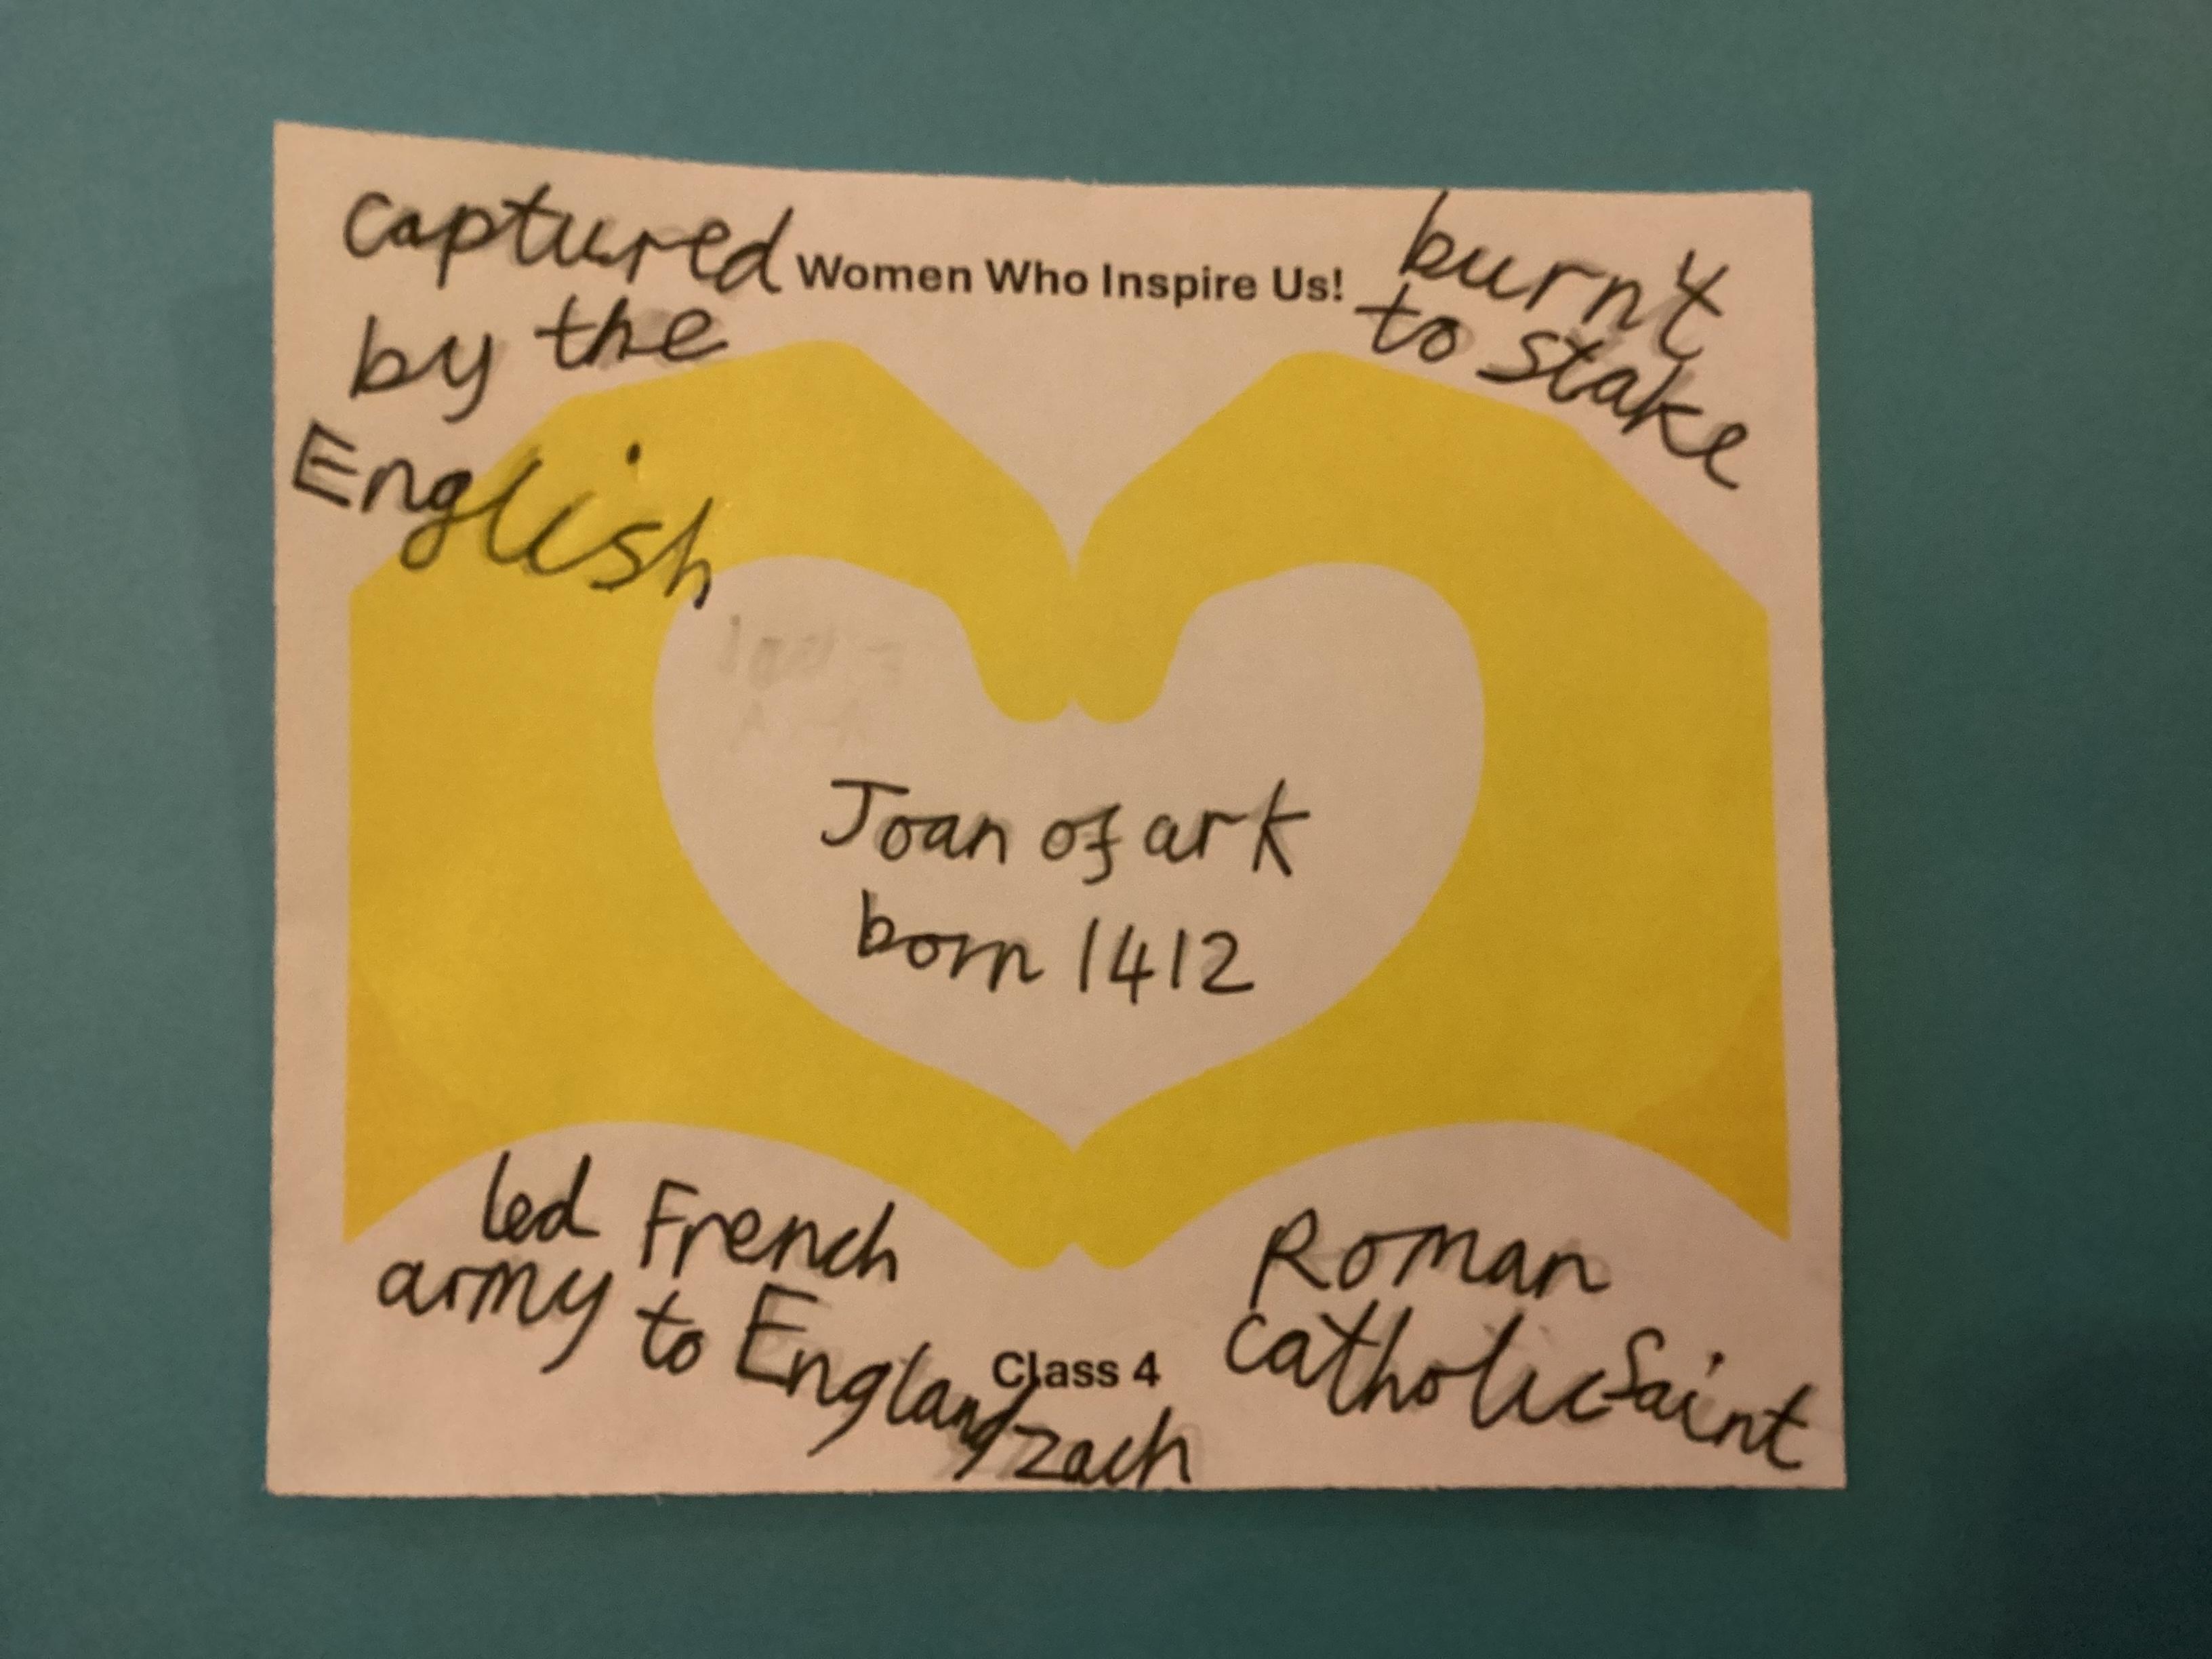 Women Who Inspire Us!
captured
by the
English
burnt
to stake
Joan of ark
born 1412
led French
army to England
Roman
catholic Saint
Class 4
zach